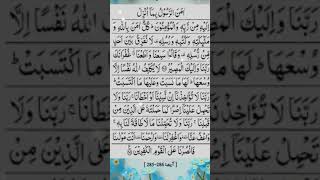 اٰمَنَ الرَّسُوْلُ بِمَاۤ اُنْزِلَ
اِلَيْهِ مِنْ رَّبِّهٖ وَالْمُؤْمِنُوْنَ كُلٌّ اٰمَنَ بِاللّٰهِ وَ
مَلٰٓئِكَتِهٖ وَكُتُبِهٖ وَرُسُلِهٖ لَا نُفَرِّقُ بَيْنَ اَحَدٍ
مِّنْ رُّسُلِهٖ وَقَالُوْا سَمِعْنَا وَاَطَعْنَا غُفْرَانَكَ
رَبَّنَا وَاِلَيْكَ الْمَصِيْرُ لَا يُكَلِّفُ اللّٰهُ نَفْسًا اِلَّا
وُسْعَهَا لَهَا مَا كَسَبَتْ وَعَلَيْهَا مَا اكْتَسَبَتْ
رَبَّنَا لَا تُؤَاخِذْنَاۤ اِنْ نَّسِيْنَاۤ اَوْ اَخْطَاْنَا رَبَّنَا وَلَا
تَحْمِلْ عَلَيْنَاۤ اِصْرًا كَمَا حَمَلْتَهٗ عَلَى الَّذِيْنَ مِنْ
قَبْلِنَا رَبَّنَا وَلَا تُحَمِّلْنَا مَا لَا طَاقَةَ لَنَا بِهٖ
وَاعْفُ عَنَّا وَاغْفِرْ لَنَا وَارْحَمْنَا اَنْتَ مَوْلٰىنَا
فَانْصُرْنَا عَلَى الْقَوْمِ الْكٰفِرِيْنَ
285-286